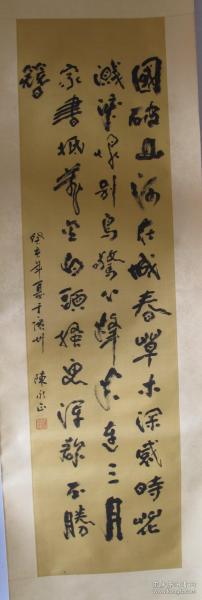 國破山河在城春草木深感時花
濺淚恨別鳥驚心烽火連三月
家書抵萬金白頭搔更渾欲不勝
簪
癸亥年夏于廣州 陳永正